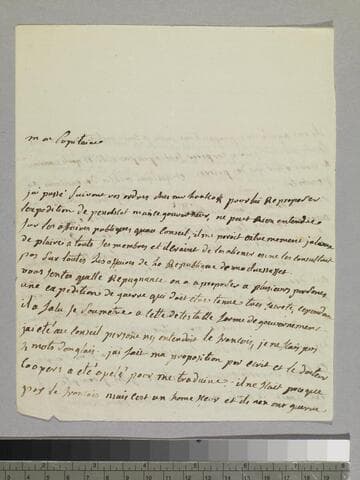 mon Capitaine
j'ai passé suivant vos ordres chez mr hankok pour lui Reproposer
l'expédition de penobscot mais ce gouverneur, ne peut Rien entendre
sur les affaires publiques qu'au Conseil, il me paroit extremement jaloux
de plaire à toute les membres et il craint de les aliener en ne les consultant
pas sur toutes les affaires de la Republique de massachusset
vous sentés quelle Repugnance on a a proposer a plusieurs personnes
une expeditions de guerre qui doit etre tenue tres secrete, cependant
il a falu se soumettre a cette detestable forme de gouvernement
j'ai eté au Conseil personne n'y entendoit le francois, je ne sais pas
2 mots d'anglais. j'ai fait ma proposition par ecrit et le docteur
Coopers a eté apelé pour me traduire. il ne sait presque
pas le francois mais c'est un home